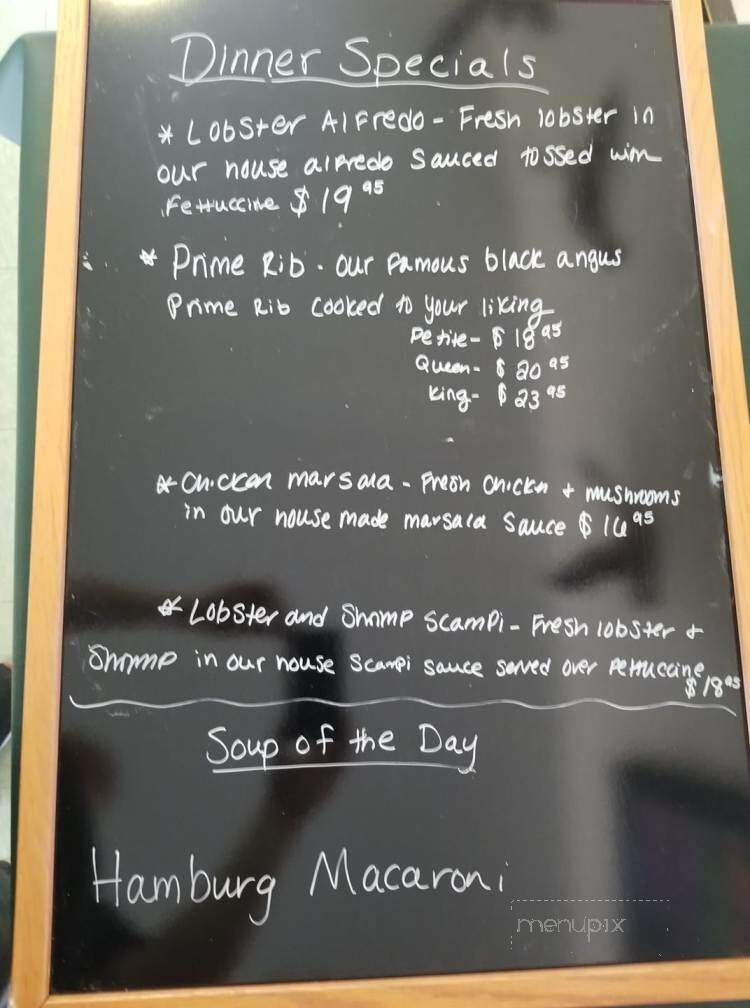 Dinner Specials
* Lobster Alfredo - Fresh lobster in
our house alfredo sauced tossed with
Fettuccine $19.95
* Prime Rib - our famous black angus
Prime Rib cooked to your liking
Petite - $18.95
Queen - $20.95
King - $23.95
* Chicken marsala - Fresh chicken + mushrooms
in our house made marsala sauce $16.95
* Lobster and Shrimp Scampi - Fresh lobster +
Shrimp in our house scampi sauce served over fettuccine
$18.95
Soup of the Day
Hamburg Macaroni
menupix